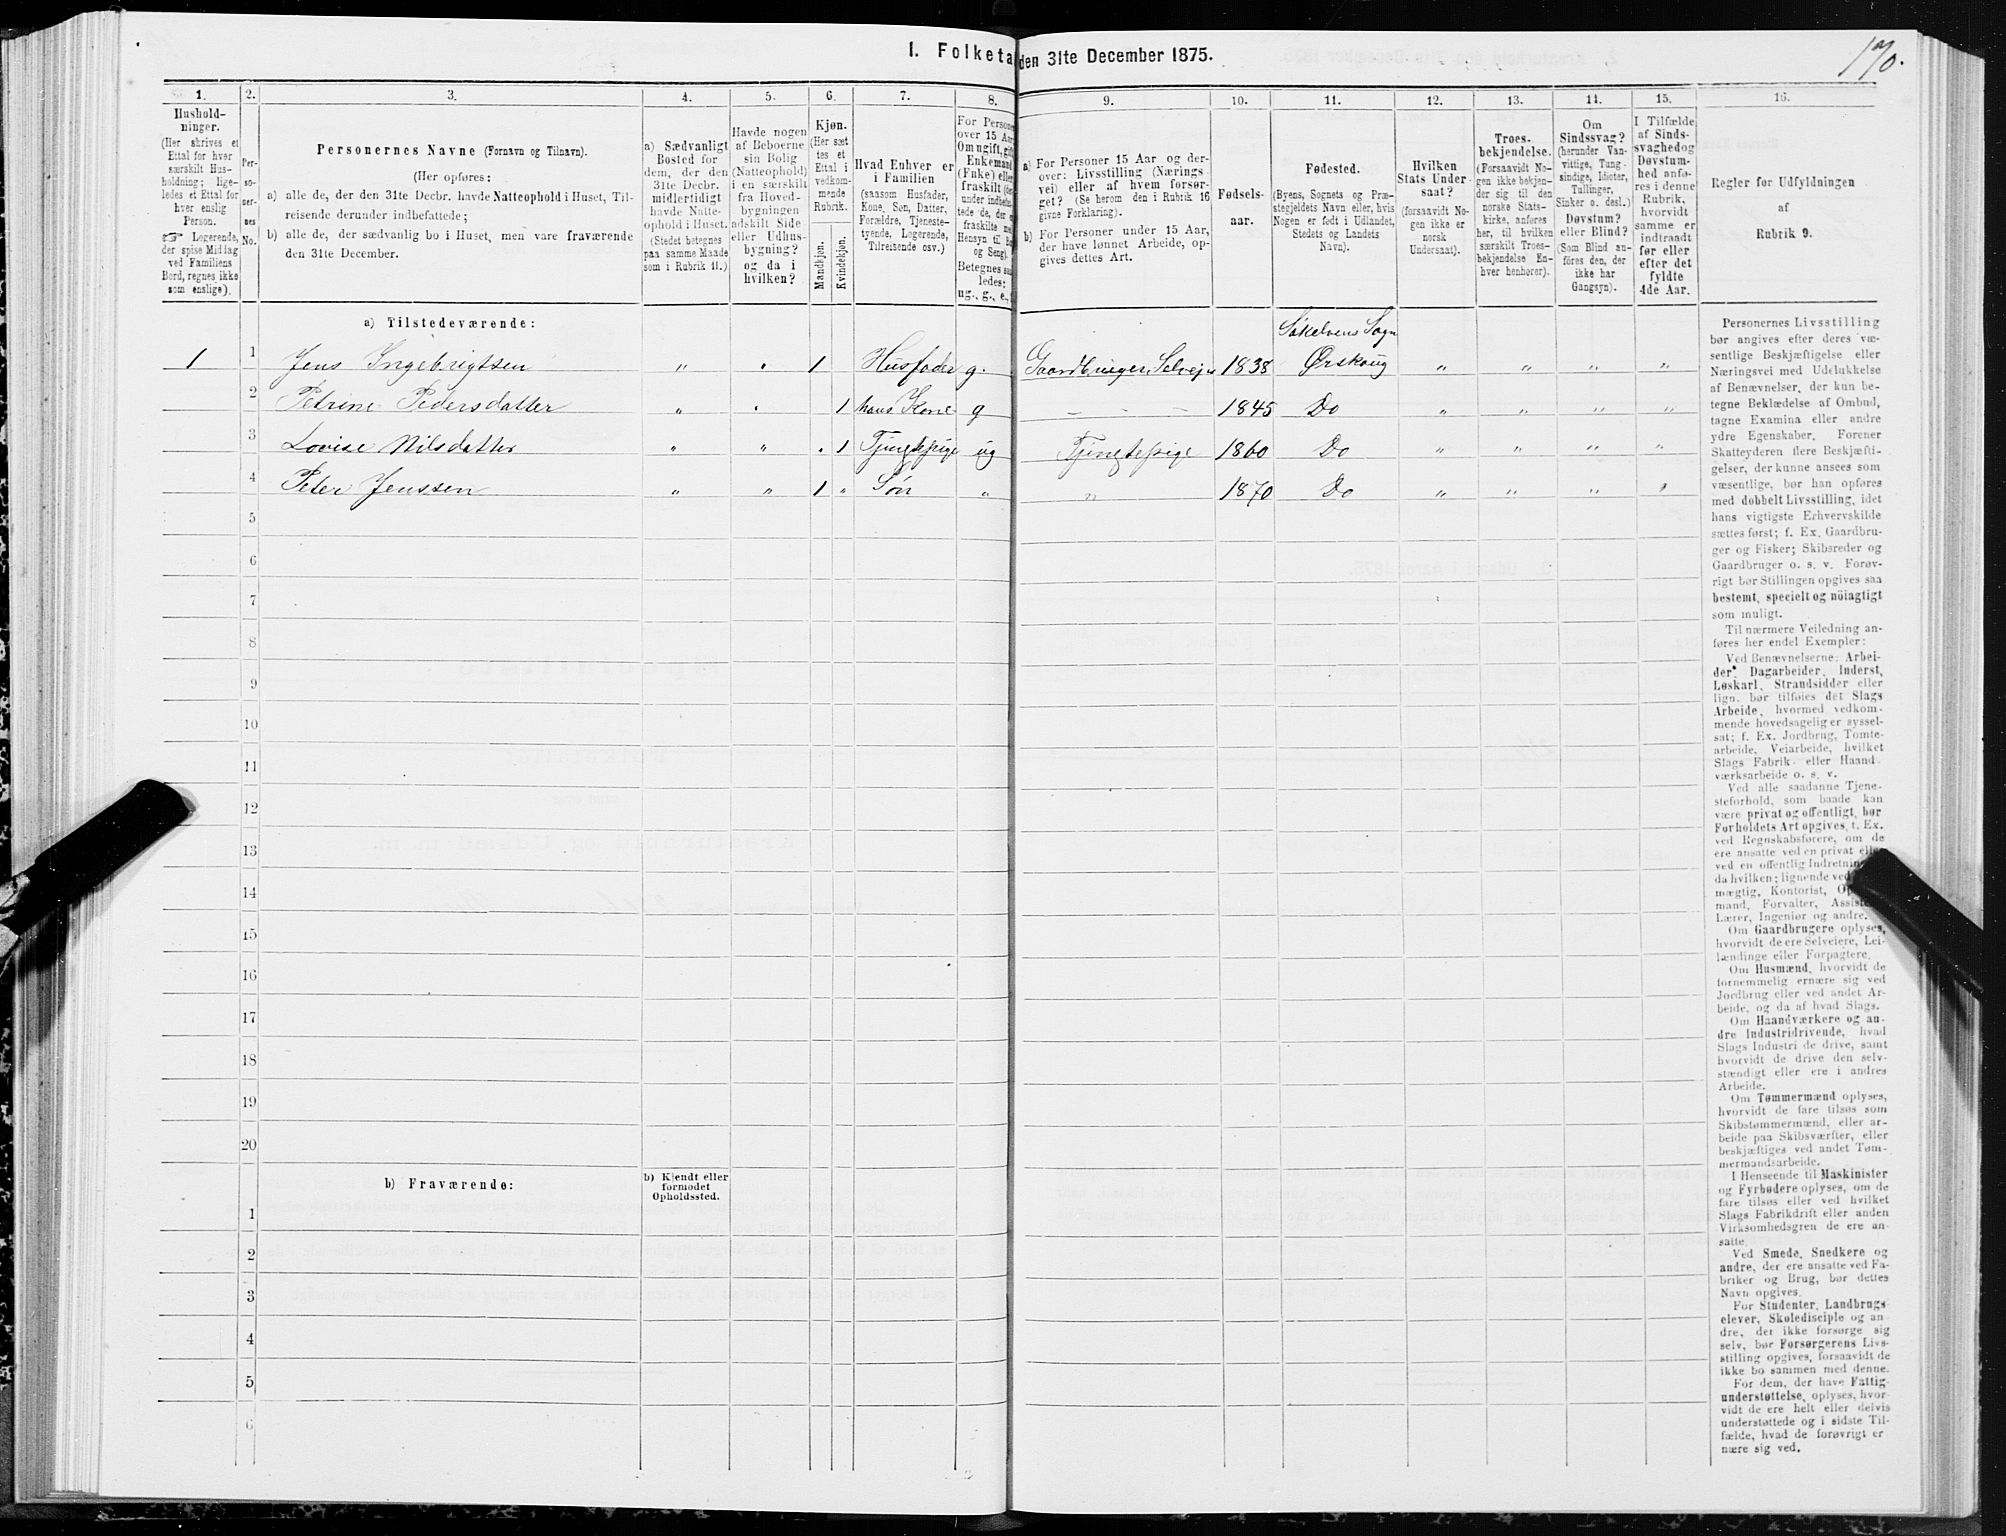 I. Folketa den 31te December 1875.
170.
1. 2. 3. 4. 5. 6. 7. 8. 9. 10. 11. 12. 13. 14. 15. 16.
Hushold-
ninger.
(Her skrives et
Ettal for hver
særskilt Hus-
holdning; lige-
ledes et Ettal for
hver enslig
Person.
☞ Logerende,
der spise Middag
ved Familiens
Bord, regnes ikke
som enslige).
Per-
so-
ner-
nes
No.
Personernes Navne (Fornavn og Tilnavn).
(Her opføres:
a) alle de, der den 31te Decbr. havde Natteophold i Huset, Til-
reisende derunder indbefattede;
b) alle de, der sædvanlig bo i Huset, men vare fraværende
den 31te December.
a) Sædvanligt
Bosted for
dem, der den
31te Decbr.
midlertidigt
havde Natte-
ophold i Huset.
(Stedet betegnes
paa samme Maade
som i Rubrik 11.)
Havde nogen
af Beboerne
sin Bolig
(Natteophold)
i en særskilt
fra Hoved-
bygningen
adskilt Side-
eller Udhus-
bygning?
og da i
hvilken?
Kjøn.
(Her sæt
tes et
Ettal i
vedkom-
mende
Rubrik.
Mandkjøn.
Kvindekjøn.
Hvad Enhver er
i Familien
(saasom Husfader,
Kone, Søn, Datter,
Forældre, Tjeneste-
tyende, Logerende,
Tilreisende osv.)
For Persone
over 15 Aar
Om ugift, gift
Enkemand
(Enke) elle
fraskilt (de
under indbefat
tede de, der e
fraskilte me
Hensyn til Bo
og Seng).
Betegnes saa
ledes:
ug., g., e.,
a) For Personer 15 Aar og der-
over: Livsstilling (Nærings
vei) eller af hvem forsør-
get? (Se herom den i Rubrik 16
givne Forklaring).
b) For Personer under 15 Aar,
der have lønnet Arbeide, op-
gives dettes Art.
Fødsels-
aar.
Fødested.
(Byens, Sognets og Præ-
stegjeldets Navn eller, hvis
Nogen er født i Udlandet,
Stedets og Landets
Navn).
Hvilken
Stats Under
saat?
(forsaavidt No-
gen ikke er
norsk
Undersaat).
Troes-
bekjendelse.
(Forsaavidt No-
gen ikke bekjen-
der sig til den
norske Stats-
kirke, anføres
her, til hvilken
særskilt Troes-
bekjendelse En-
hver henhører).
Om
Sindssvag?
(herunder Van-
vittige, Tung-
sindige, Idioter,
Tullinger,
Sinker o. desl.)
Døvstum?
eller Blind?
(Som Blind an-
føres den, der
ikke har
Gangsyn).
I Tilfælde
af Sinds-
svaghed og
Døvstum-
hed anfø-
res i denne
Rubrik,
hvorvidt
samme er
indtraadt
før eller
efter det
fyldte
4de Aar.
Regler for Udfyldningen
af
Rubrik 9.
a) Tilstedeværende:
Søkelvens Sogn
1 1 Jens Ingebrigtsen " " 1 Husfader g. Gaardbruger, Selveje 1838 Ørskoug " " " "
2 Petrine Pedersdatter " " 1 hans Kone g - - - 1845 Do " " " "
3 Lovise Nilsdatter " " " 1 Tjingtepige ug Tjingtepige 1860 Do " " " "
4 Peter Jenssen " " 1 " Søn " " 1870 Do " " " "
5
6
7
8
9
10
11
12
13
14
15
16
17
18
19
20
b) Fraværende:
b) Kjendt eller
formodet
Opholdssted.
1
2
3
4
5
6
Personernes Livsstilling
bør angives efter deres væ-
sentlige Beskjæftigelse eller
Næringsvei med Udelukkelse
af Benævnelser, der kun be-
tegne Beklædelse af Ombud,
tagne Examina eller andre
ydre Egenskaber. Forener
Skatteyderen flere Beskjæfti-
gelser, der kunne ansees som
væsentlige, bør han opføres
med dobbelt Livsstilling, idet
hans vigtigste Erhvervskilde
sættes først; f. Ex. Gaardbru-
ger og Fisker; Skibsreder og
Gaardbruger o. s. v. Forøv-
rigt bør Stillingen opgives saa
bestemt, specielt og nöiagtigt
som muligt.
Til nærmere Veiledning an-
føres her endel Exempler:
Ved Benævnelserne: Arbei-
der, Dagarbeider, Inderst,
Løskarl, Strandsidder eller
lign. bør tilføies det Slags
Arbeide, hvormed vedkom-
mende hovedsagelig er syssel-
sat; f. Ex. Jordbrug, Tomte-
arbeide, Veiarbeide, hvilket
Slags Fabrik- eller Haand-
værksarbeide o. s. v.
Ved alle saadanne Tjene-
steforhold, som baade kan
være privat og offentligt, bør
Forholdets Art opgives, t. Ex.
ved Regnskabsførere, om de
ere ansatte ved en privat elle
ved en offentlig Indretning
da hvilken; lignende ved
mægtig, Kontorist, Op
mand, Forvalter, Assiste
Lærer, Ingeniør og andre.
Om Gaardbrugere oplyses,
hvorvidt de ere Selveiere, Lei-
lændinge eller Forpagtere.
Om Husmænd, hvorvidt de
fornemmelig ernære sig ved
Jordbrug eller ved andet Ar-
beide, og da af hvad Slags.
Om Haandværkere og an-
dre Industridrivende, hvad
Slags Industri de drive, samt
hvorvidt de drive den selv-
stændigt eller ere i andres
Arbeide.
Om Tømmermænd oplyses,
hvorvidt de fare tilsøs som
Skibstømmermænd, eller ar-
beide paa Skibsværfter, eller
beskjæftiges ved andet Tøm-
mermandsarbeide.
I Henseende til Maskinister
og Fyrbødere oplyses, om de
fare tilsøs eller ved hvilket
Slags Fabrikdrift eller anden
Virksomhedsgren de ere an-
satte.
Ved Smede, Snedkere og
andre, der ere ansatte ved Fa-
briker og Brug, bør dettes
Navn opgives.
For Studenter, Landbrugs-
elever, Skoledisciple og an-
dre, der ikke forsørge sig
selv, bør Forsørgerens Livs-
stilling opgives, forsaavidt de
ikke bo sammen med denne.
For dem, der have Fattig-
understøttelse, oplyses, hvor-
vidt de ere helt eller delvis
understøttede og i sidste Til-
fælde, hvad de forøvrigt er
nære sig ved.